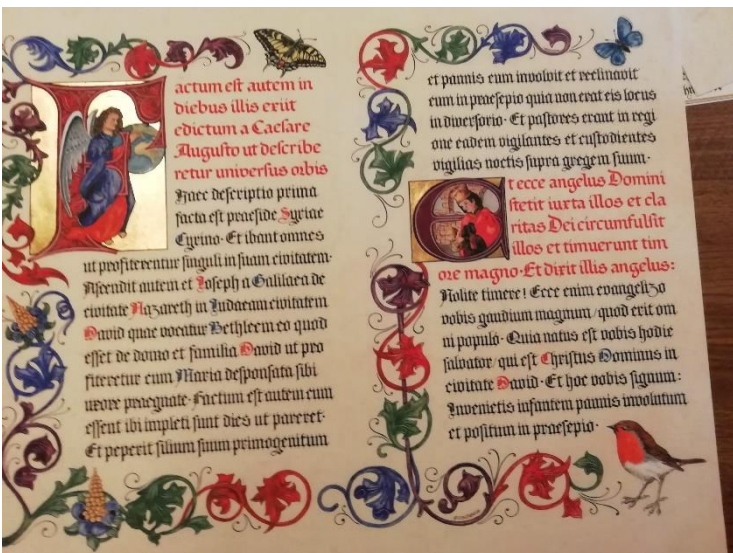 Factum est autem in
diebus illis exiit
edictum a Caesare
Augusto ut describe
retur universus orbis
Haec descriptio prima
facta est praeside Syriae
Cyrino · Et ibant omnes
ut profiterentur singuli in suam civitatem·
Ascendit autem et Joseph a Galilaea de
civitate Nazareth in Judaeam civitatem
David quae vocatur Bethleem eo quod
esset de domo et familia David ut pro
fiteretur cum Maria desponsata sibi
uxore praegnate · Factum est autem cum
essent ibi impleti sunt dies ut pareret·
Et peperit filium suum primogenitum
et pannis eum involvit et reclinavit
eum in praesepio quia non erat eis locus
in diversorio · Et pastores erant in regi
one eadem vigilantes et custodientes
vigilias noctis supra gregem suum·
Et ecce angelus Domini
stetit iuxta illos et cla
ritas Dei circumfulsit
illos et timuerunt tim
ore magno · Et dixit illis angelus:
Nolite timere! Ecce enim evangelizo
vobis gaudium magnum, quod erit om
ni populo · Quia natus est vobis hodie
salvator, qui est Christus Dominus in
civitate David · Et hoc vobis signum:
Invenietis infantem pannis involutum
et positum in praesepio·